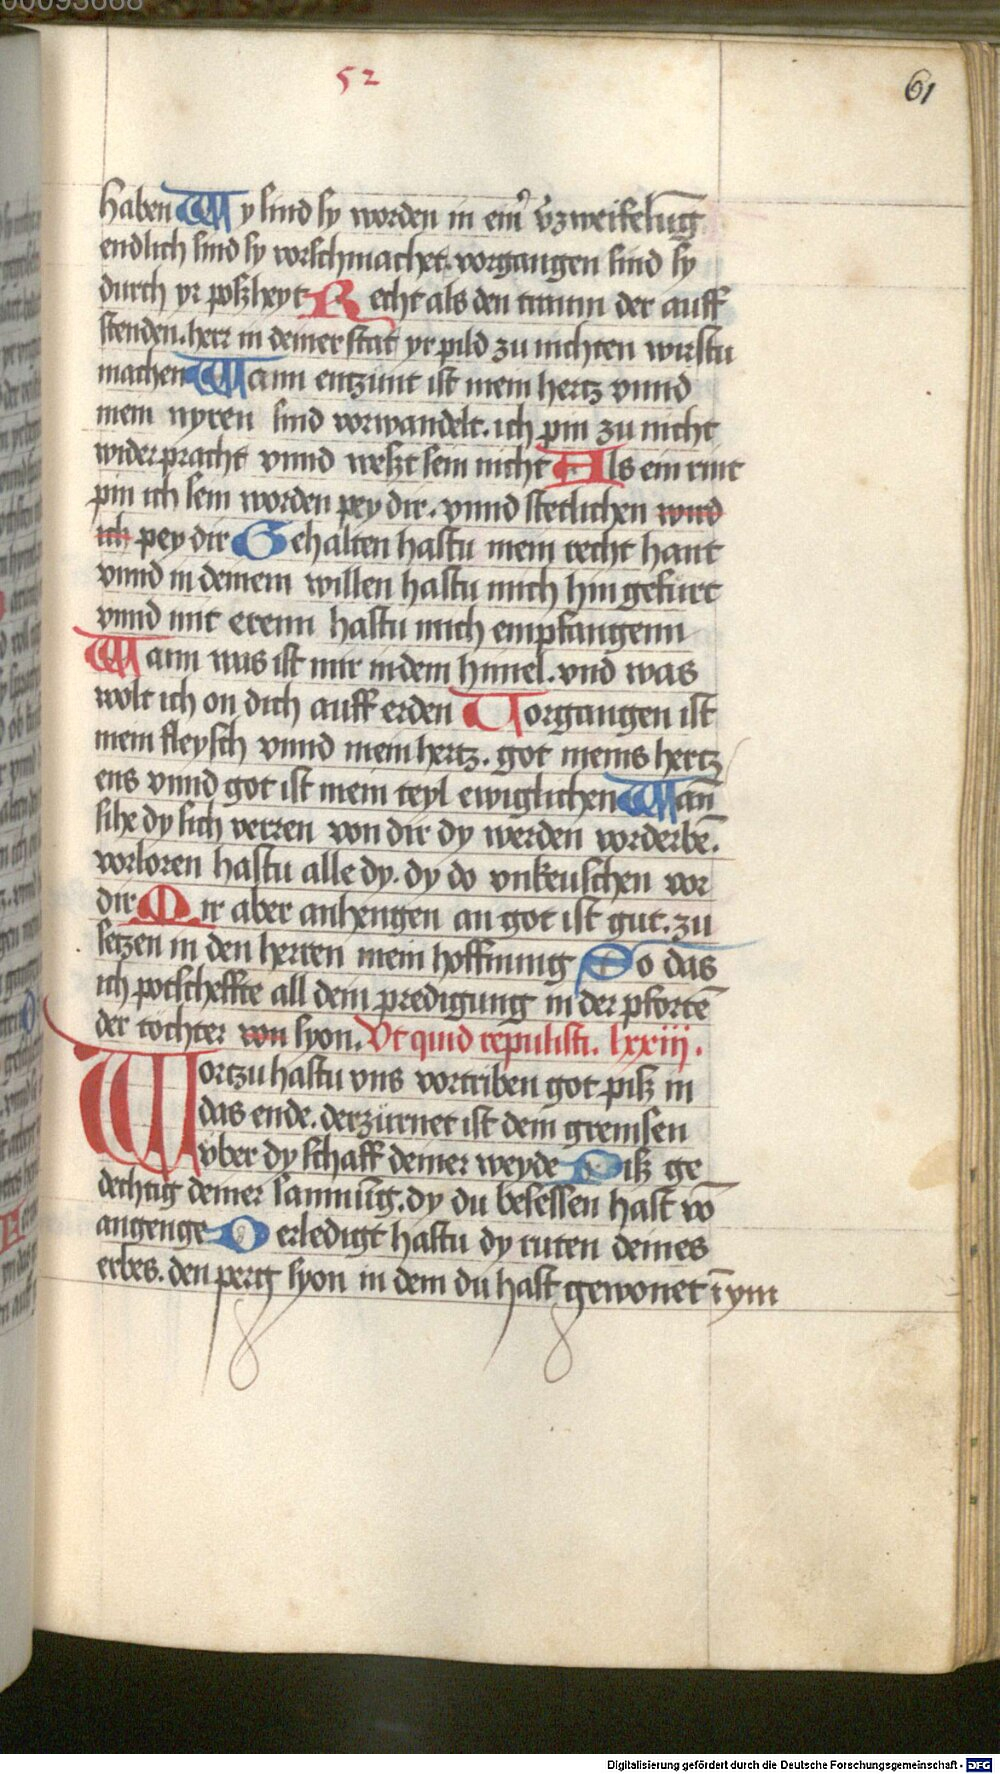 00093668
52
61
haben Wy sind sy worden in eim̄ v̄zweifelūg
endlich sind sy vorschmachet. vorgangen sind sy
durch yr poszheyt Recht als den traum der auff
stenden. herr in deiner stat yr pild zu nichten wirstu
machen Wann entzünt ist mein hertz vnnd
mein nyren sind vorwandelt. ich pin zu nicht
widerpracht vnnd weszt sein nicht Als ein rint
pin ich sein worden pey dir. vnnd stetlichen wird
ich pey dir Gehalten hastu mein recht hant
vnnd in deinem willen hastu mich hin gefürt
vnnd mit erenn hastu mich empfangenn
Wann was ist mir in dem himel. vnd was
wolt ich on dich auff erden Vorgangen ist
mein fleysch vnnd mein hertz. got meins hertz
ens vnnd got ist mein teyl ewiglichen Wan̄
sihe dy sich verren von dir dy werden vorderbē.
vorloren hastu alle dy. dy do vnkeuschen vor
dir Mir aber anhengen an got ist gut. zu
setzen in den herren mein hoffnung So das
ich potscheffte all dein predigung in der pfortē
der töchter von syon. Vt quid repulisti. lxxiij.
Wortzu hastu vns vortriben got pisz in
das ende. derzürnet ist dein gremsen
vber dy schaff deiner weyde Pisz ge
dechtig deiner samnūg. dy du besessen hast vō
angenge O erledigt hastu dy ruten deines
erbes. den perg syon in dem du hast gewonet ī ym
Digitalisierung gefördert durch die Deutsche Forschungsgemeinschaft - DFG